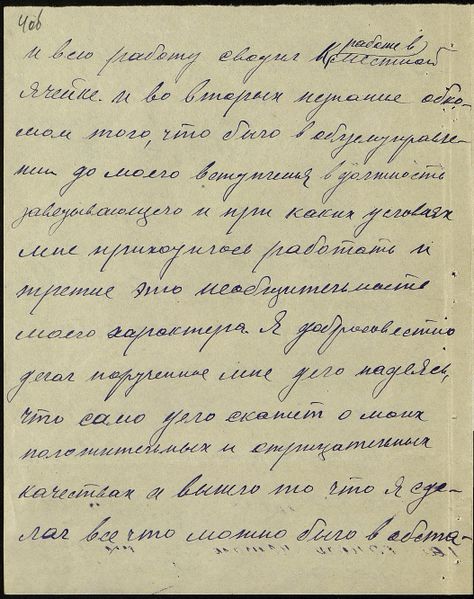 4об
и всю работу сводил к работе в местной
ячейке. И во вторых незнание обко-
мом того, что было в общем управле-
нии до моего вступления в должность
заведывающего и при каких условиях
мне приходилось работать и
третие это необщительность
моего характера. Я добросовестно
делал порученное мне дело надеясь,
что само дело скажет о моих
положительных и отрицательных
качествах и вышло то что я сде-
лал все что можно было в обста-